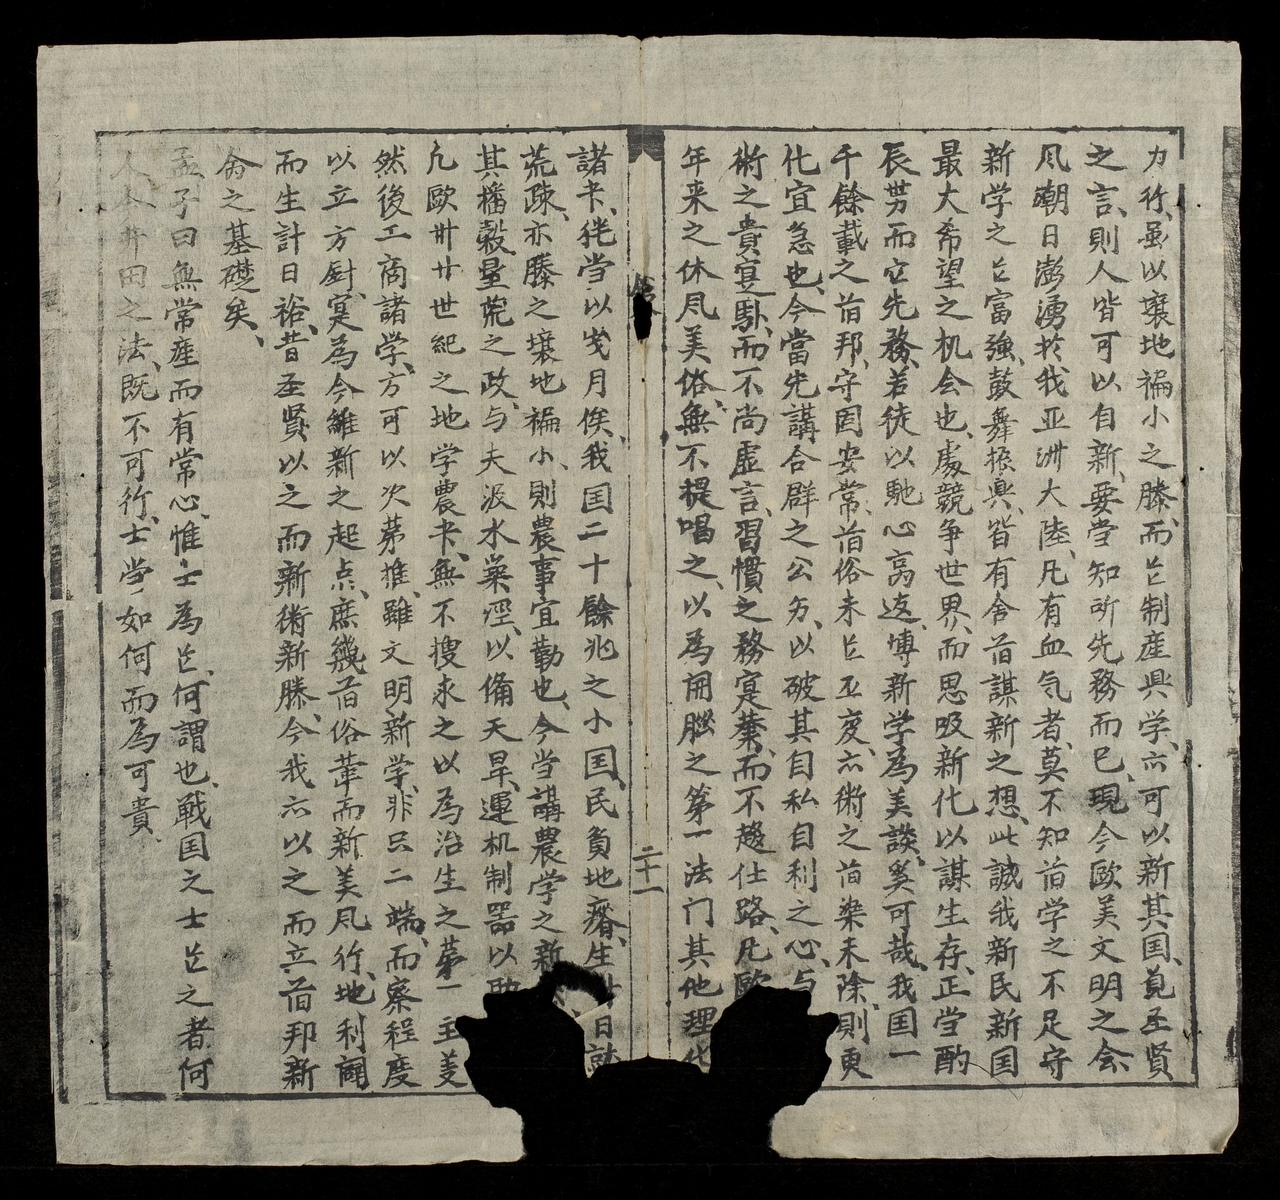 力行、虽以壤地褊小之滕、而亡制産興学、亦可以新其国、覓圣贤
之言、則人皆可以自新、要当知所先務而已、現今歐美文明之会
凨潮日澎湧於我亚洲大陸、凡有血気者、莫不知旧学之不足守
新学之亡富強、鼓舞振興、皆有舍旧謀新之想、此誠我新民新国
最大希望之机会也、處競争世界、而思吸新化以謀生存、正当酌
辰势而定先務、若徒以馳心高遠、博新学為美談、奚可哉、我国一
千餘載之旧邦、守困安常、旧俗未亡丕変、六術之旧染未除、則更
化宜急也、今當先講合群之公、以破其自私自利之心、与
術之貴寔馭、而不尚虚言、習慣之務寔業、而不趨仕路、凡歐
年来之休凨美俗、無不提唱之、以為開腦之第一法门其他理
舘
二十一
諸、当以歲月俟、我国二十餘兆之小国、民負地瘠、生 日就
荒疎、亦滕之壤地褊小、則農事宜勤也、今当講農学之新
其播穀量荒之政、与夫汲水築、以備天旱、運机制器以助
凡歐卅廿世紀之地学農、無不搜求之以為治生之第一主
然後工商諸学、方可以次第推、雖文明新学、非只二端、而察程度
以立方針、寔為今維新之起点、庶幾旧俗革而新美凨行、地利闢
而生計日裕、昔圣賢以之而新術新滕、今我亦以之而立旧邦新
命之基礎矣、
孟子曰無常産而有常心、惟士為亡、何謂也、戰国之士亡之者何
人今井田之法、既不可行、士当如何而為可貴、